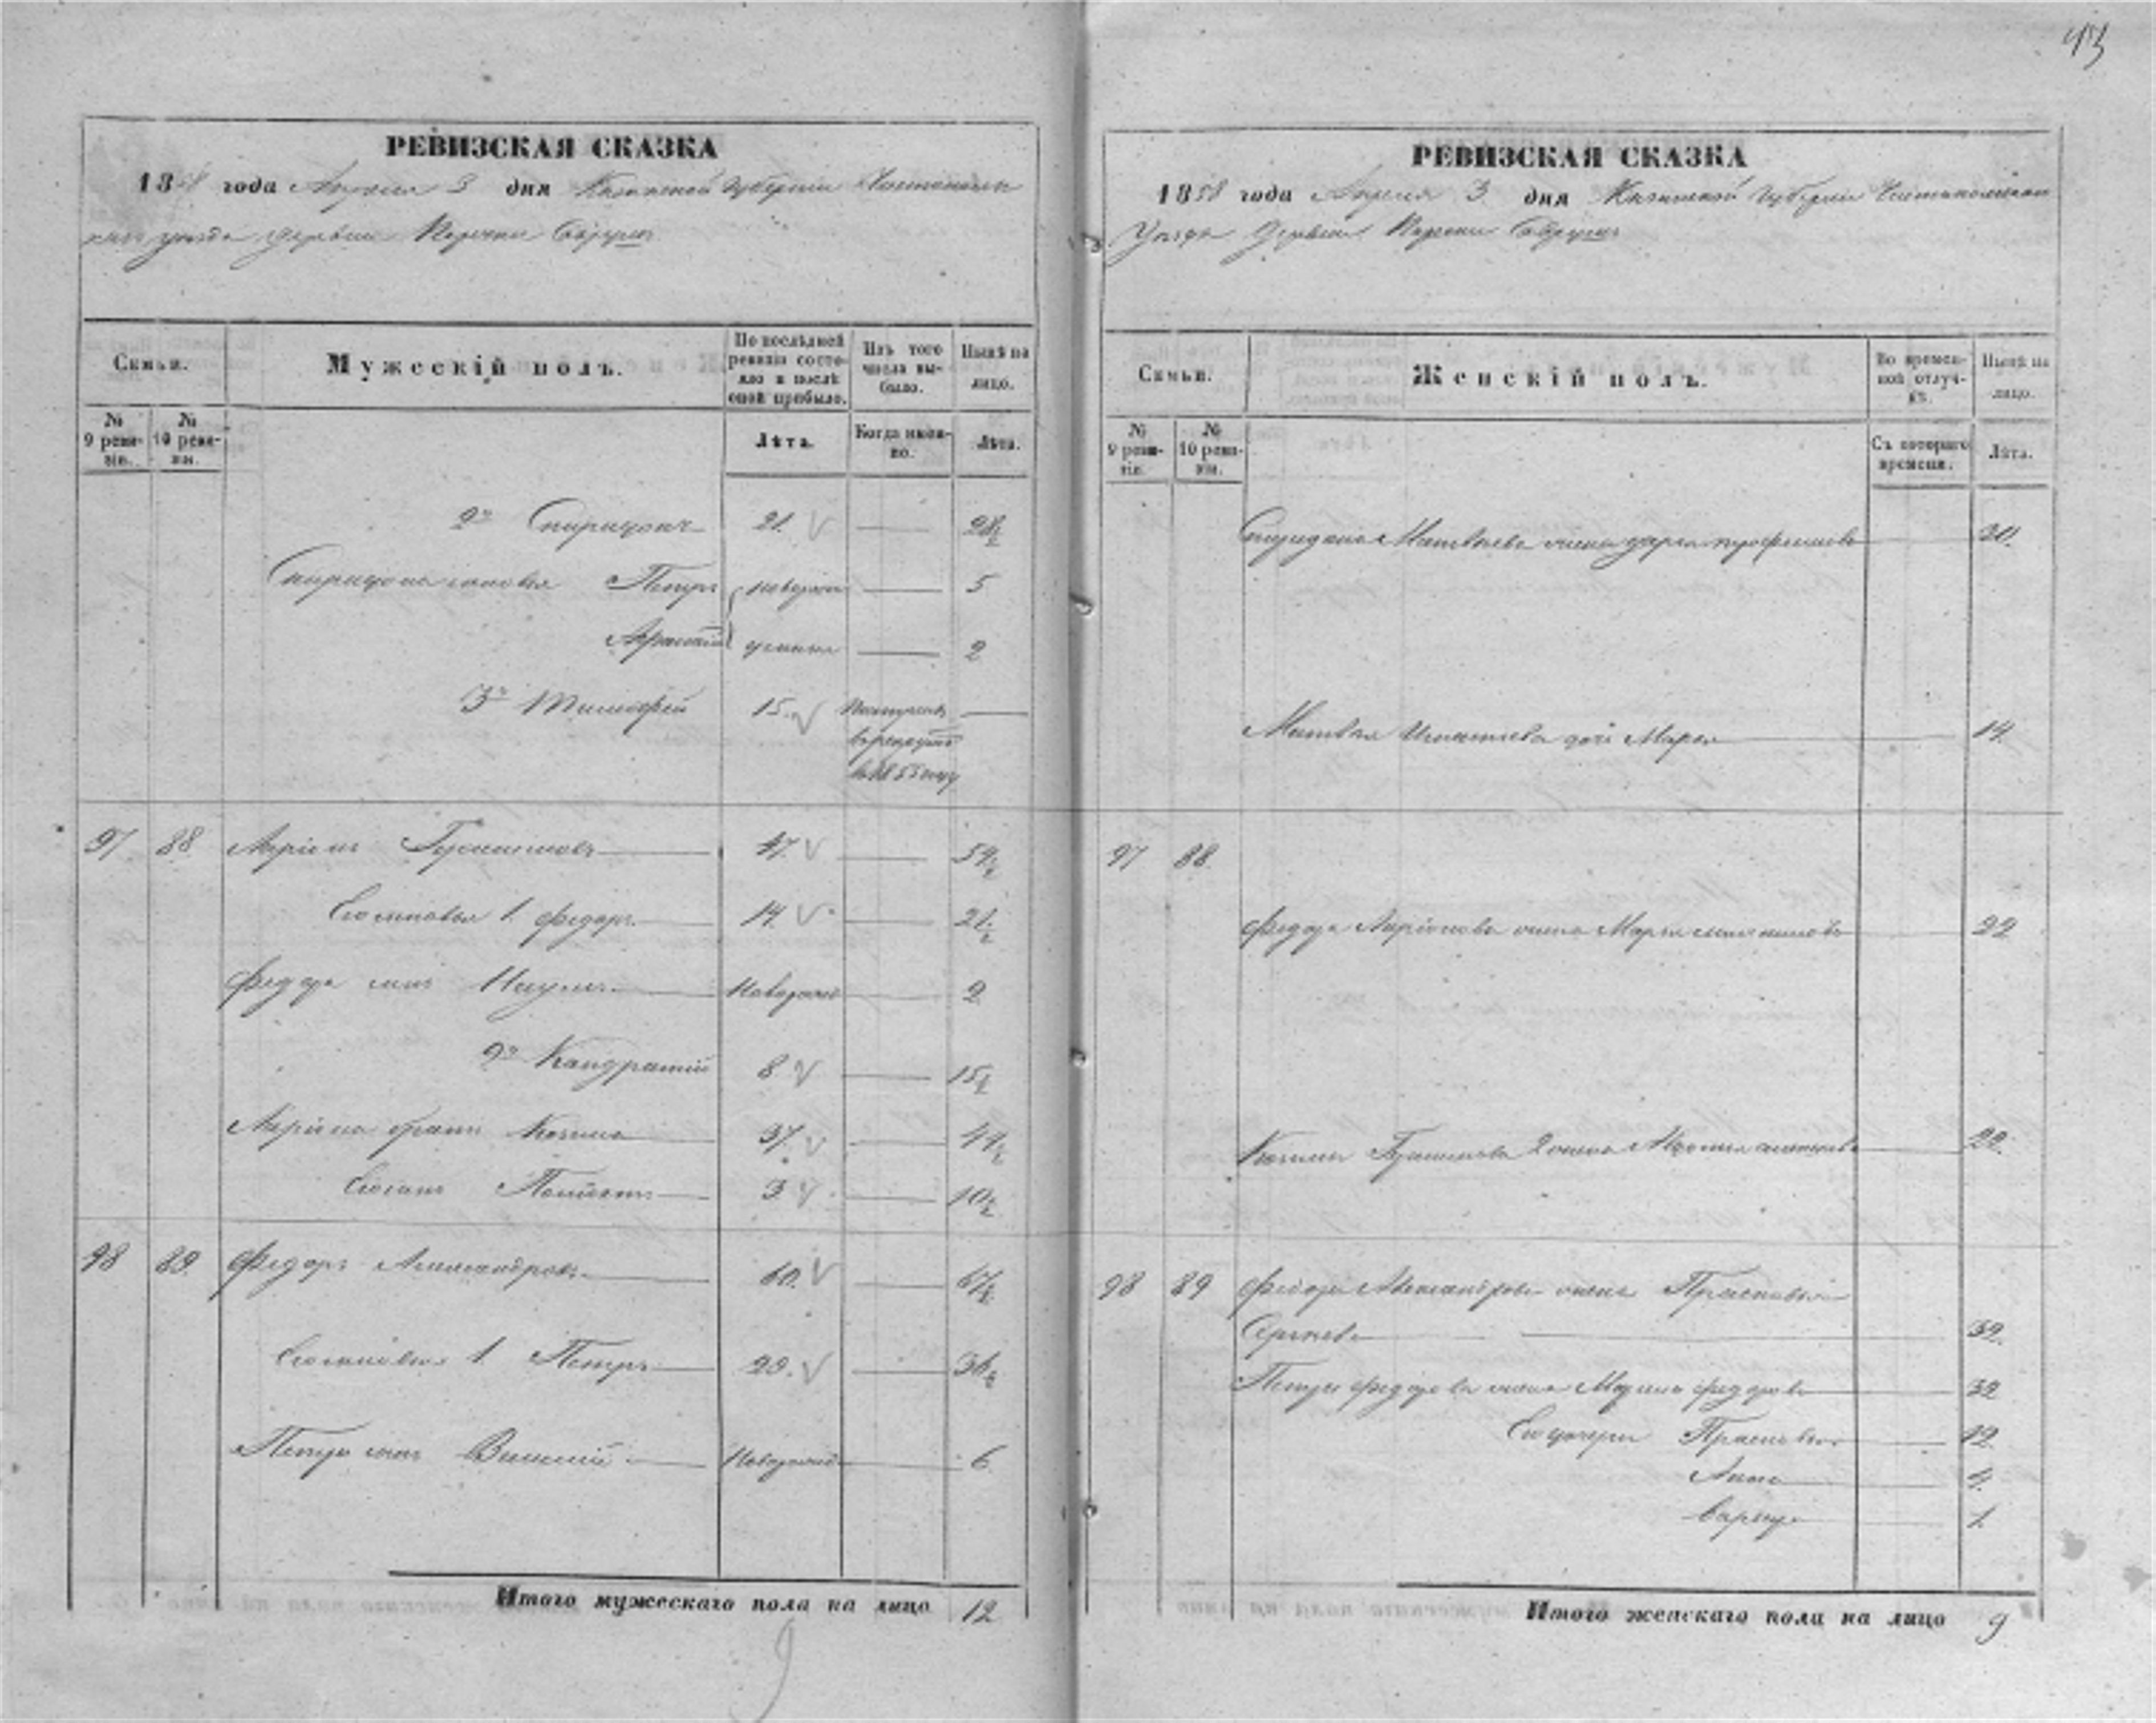 43
РЕВИЗСКАЯ СКАЗКА
1858 года Апреля 3 дня Казанской Губернии Чистопольс
каго уезда деревни
Семьи.
Мужескій полъ.
По послѣдней ревизіи состояло и послѣ оной прибыло.
Изъ того числа выбыло.
Нынѣ на лицо.
№ 9 ревизіи.
№ 10 ревизіи.
Лѣта.
Когда именно.
Лѣта.
2й Спиридонъ 21. — 28½
Спиридона сыновья Петръ новорож — 5
денные — 2
3й Тимофей 15. —
97 88 Ларіонъ 47. — 54½
Его сыновья 1. Федоръ 14. — 21½
Федора сынъ Наумъ Новорожд — 2
2й Кандратій 8 — 15½
Ларіона братъ Козьма 37. — 44½
Его сынъ 3 — 10½
98 89. Федоръ Александровъ 60. — 67½
Его сыновья 1. Петръ 29. — 36½
Петра сынъ Василій Новорожд — 6
Итого мужескаго пола на лицо 12
9
РЕВИЗСКАЯ СКАЗКА
1858 года Апреля 3 дня Казанской Губерніи Чистопольскаго
Уезда Деревни
Семьи.
Женскій полъ.
Во временной отлучкѣ.
Нынѣ на лицо.
№ 9 ревизіи.
№ 10 ревизіи.
Съ котораго времени.
Лѣта.
Спиридона Матвѣева жена Дарья Трофимова 30.
Матвѣя Игнатьева дочь Марья 14.
97 88.
Федора Ларіонова жена Марья 22
Козьмы 2 жена 22.
98 89 Федора Александрова жена Прасковья
Сергѣева 39.
Петра Федорова жена Федорова 32
Его дочери Прасковья 12
Анна 4.
1.
Итого женскаго пола на лицо 9